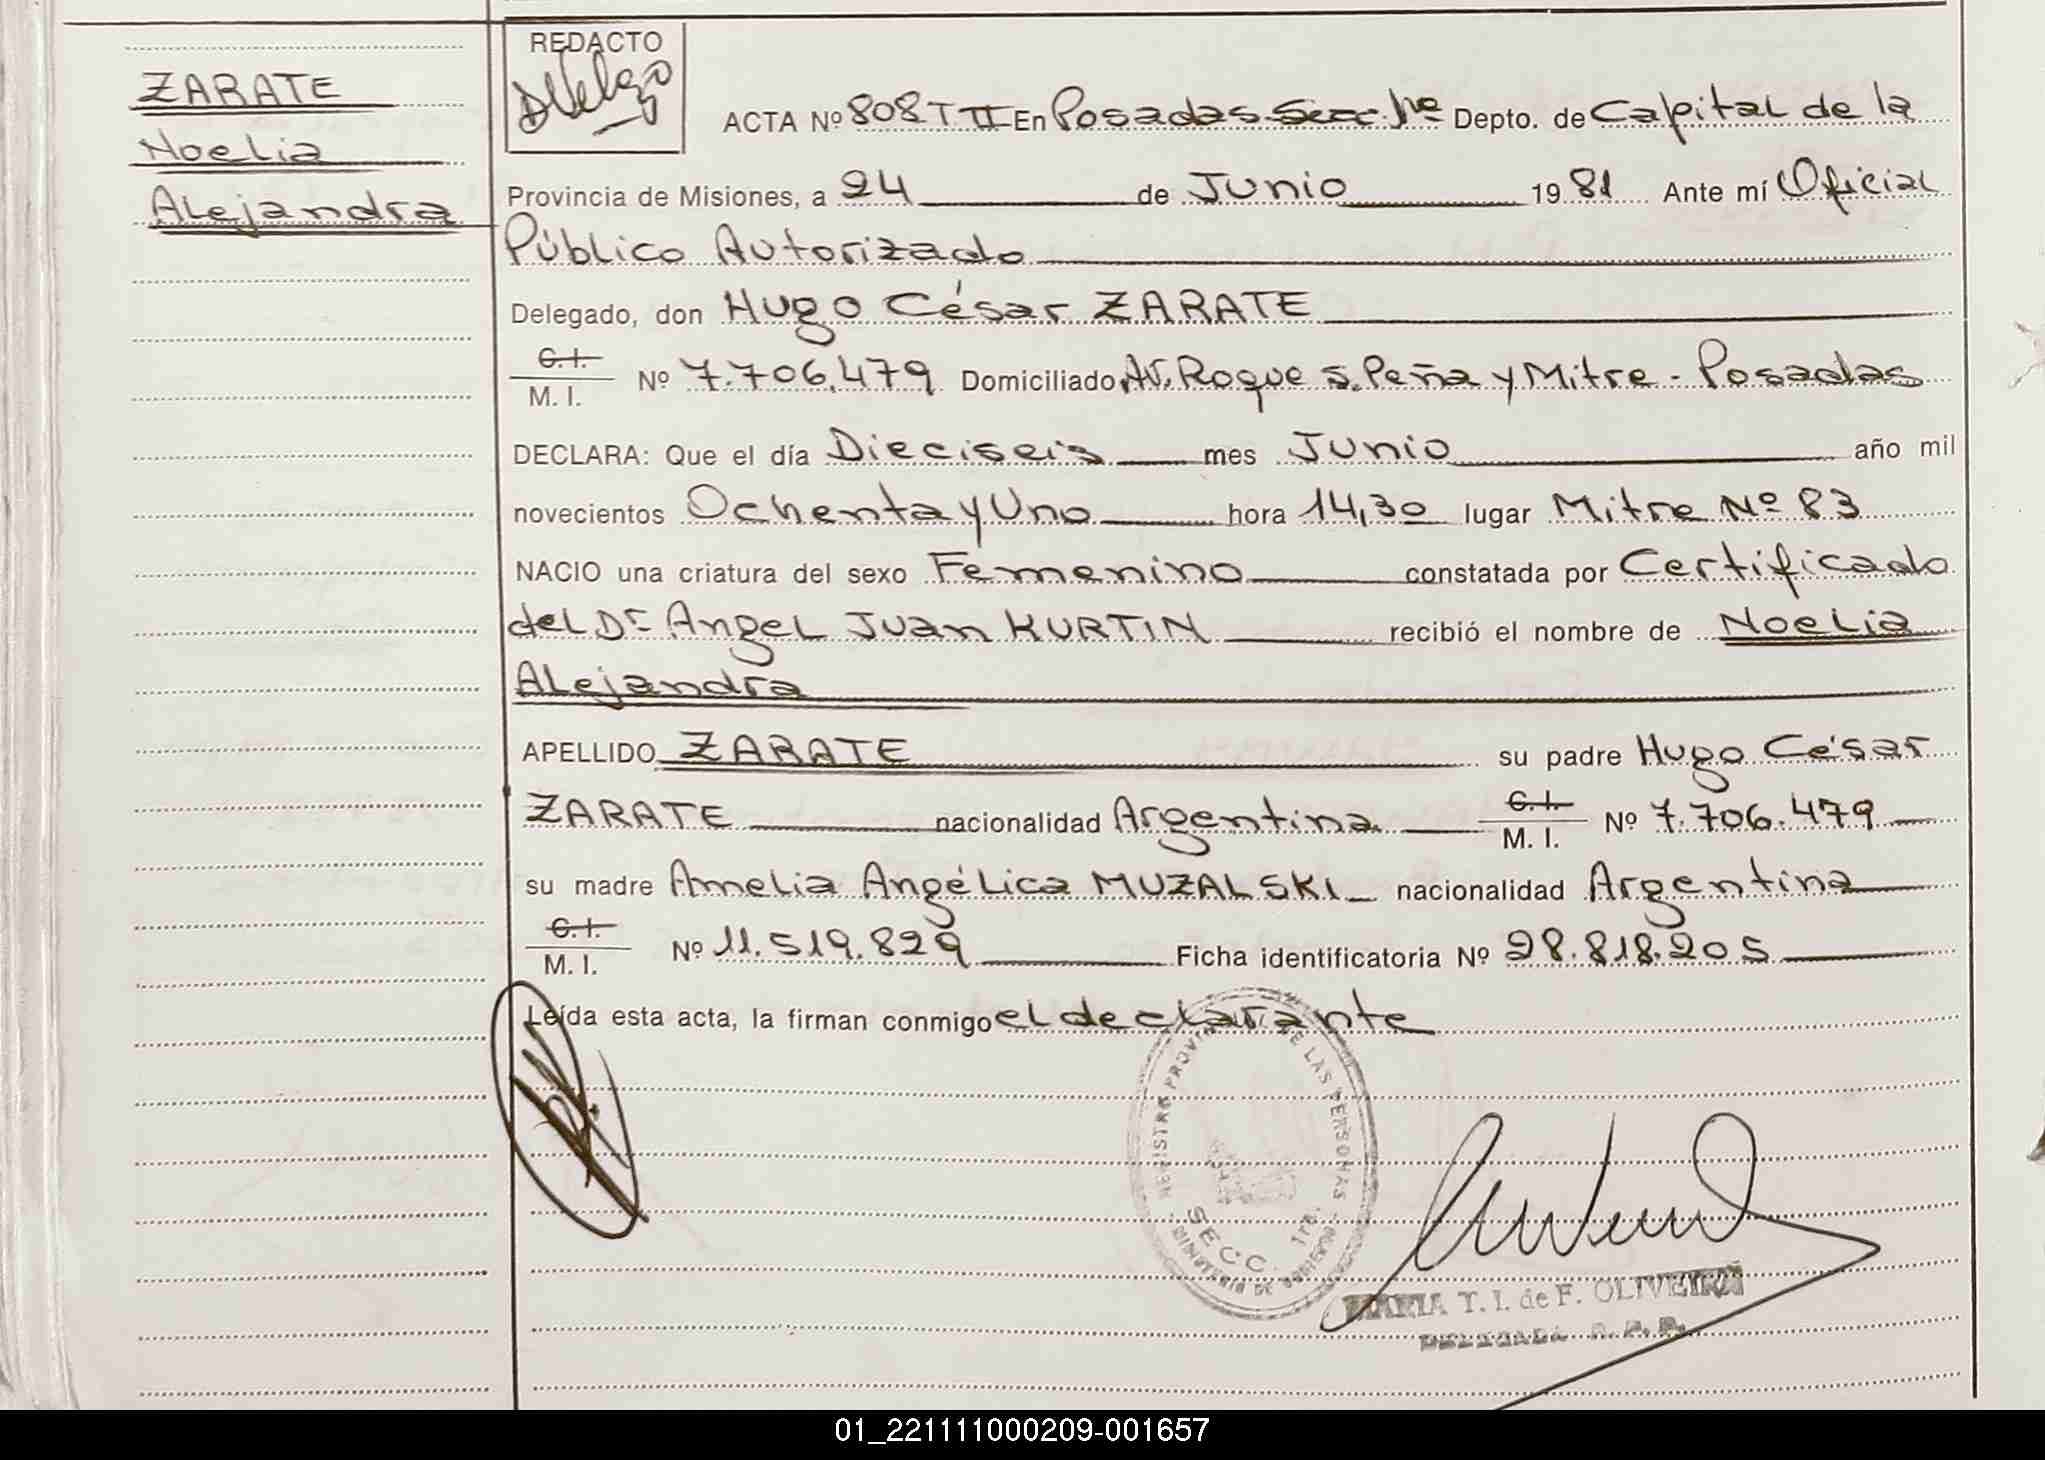 ZARATE
Noelia
Alejandra
REDACTO
ACTA Nº 808 T II En Posadas Secc 1ra Depto. de Capital de la
Provincia de Misiones, a 24 de Junio 1981 Ante mí Oficial
Público Autorizado
Delegado, don Hugo César ZARATE
C.I.
M. I. Nº 7.706.479 Domiciliado Av. Roque S. Peña y Mitre - Posadas
DECLARA: Que el día Dieciseis mes Junio año mil
novecientos Ochenta y Uno hora 14,30 lugar Mitre Nº 83
NACIO una criatura del sexo Femenino constatada por Certificado
del Dr Angel Juan KURTIN recibió el nombre de Noelia
Alejandra
APELLIDO ZARATE su padre Hugo César
ZARATE nacionalidad Argentina C.I.
M. I. Nº 7.706.479
su madre Amelia Angélica MUZALSKI nacionalidad Argentina
C.I.
M. I. Nº 11.519.829 Ficha identificatoria Nº 28.818.205
Leída esta acta, la firman conmigo el declarante
REGISTRO PROVINCIAL DE LAS PERSONAS
SECC. 1ra.
MINISTERIO DE GOBIERNO
MARIA T. I. de F. OLIVEIRA
DELEGADA R. P. P.
01_221111000209-001657